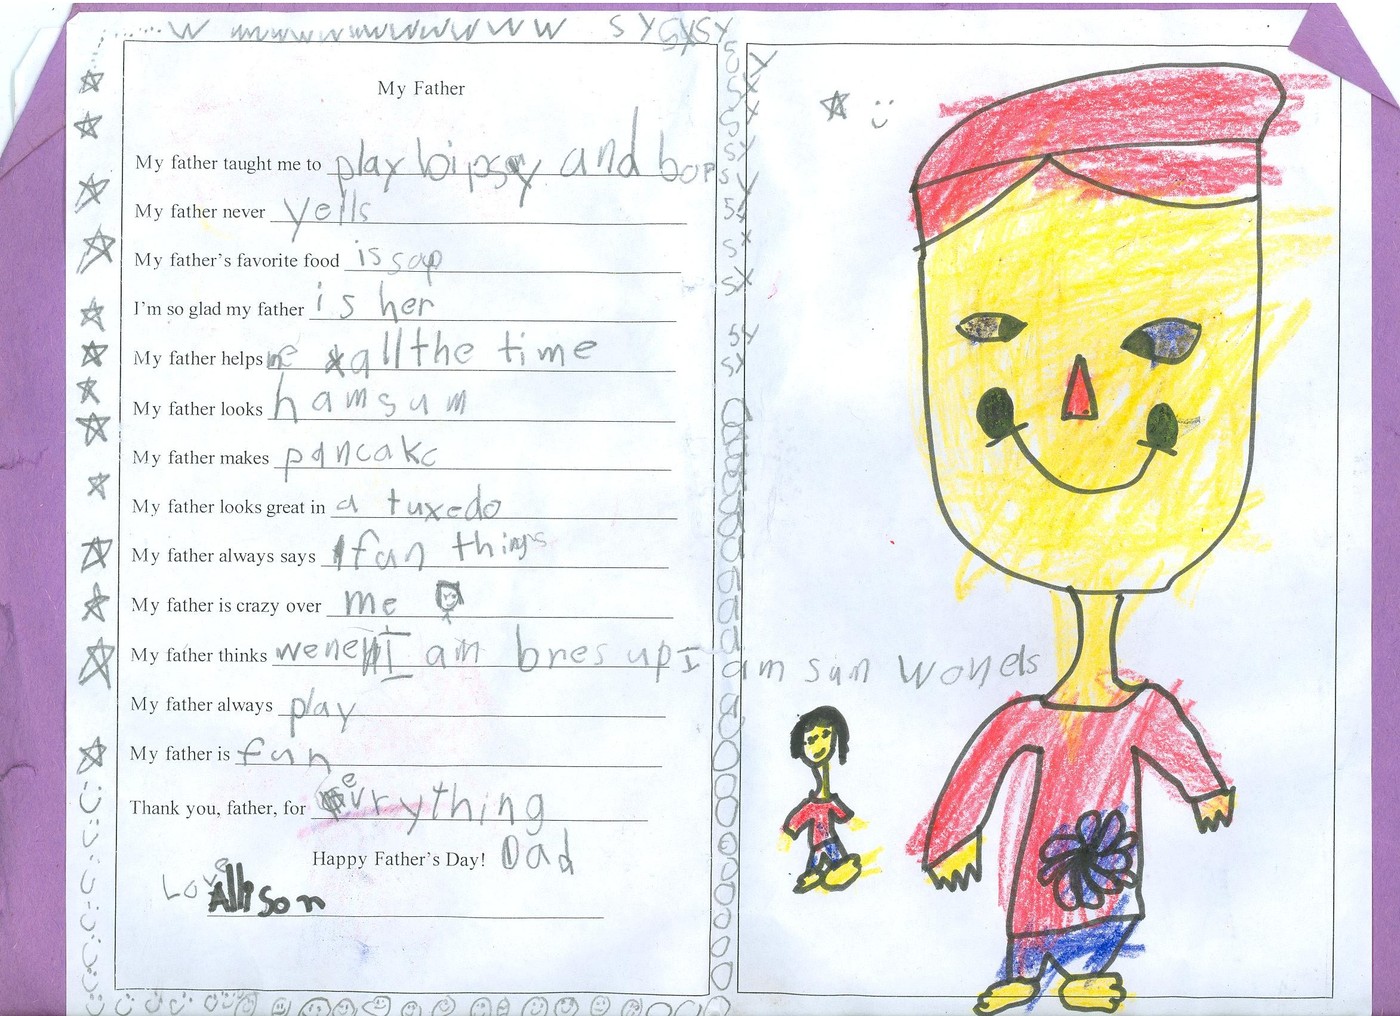 My Father
My father taught me to play bipsy and bop
My father never yells
My father's favorite food is sop
I'm so glad my father is her
My father helps me all the time
My father looks hamsum
My father makes pancake
My father looks great in a tuxedo
My father always says fun things
My father is crazy over me
My father thinks wene I am bresup I am sun woneds
My father always play
My father is fun
Thank you, father, for everything
Happy Father's Day! Dad
Love
Allison